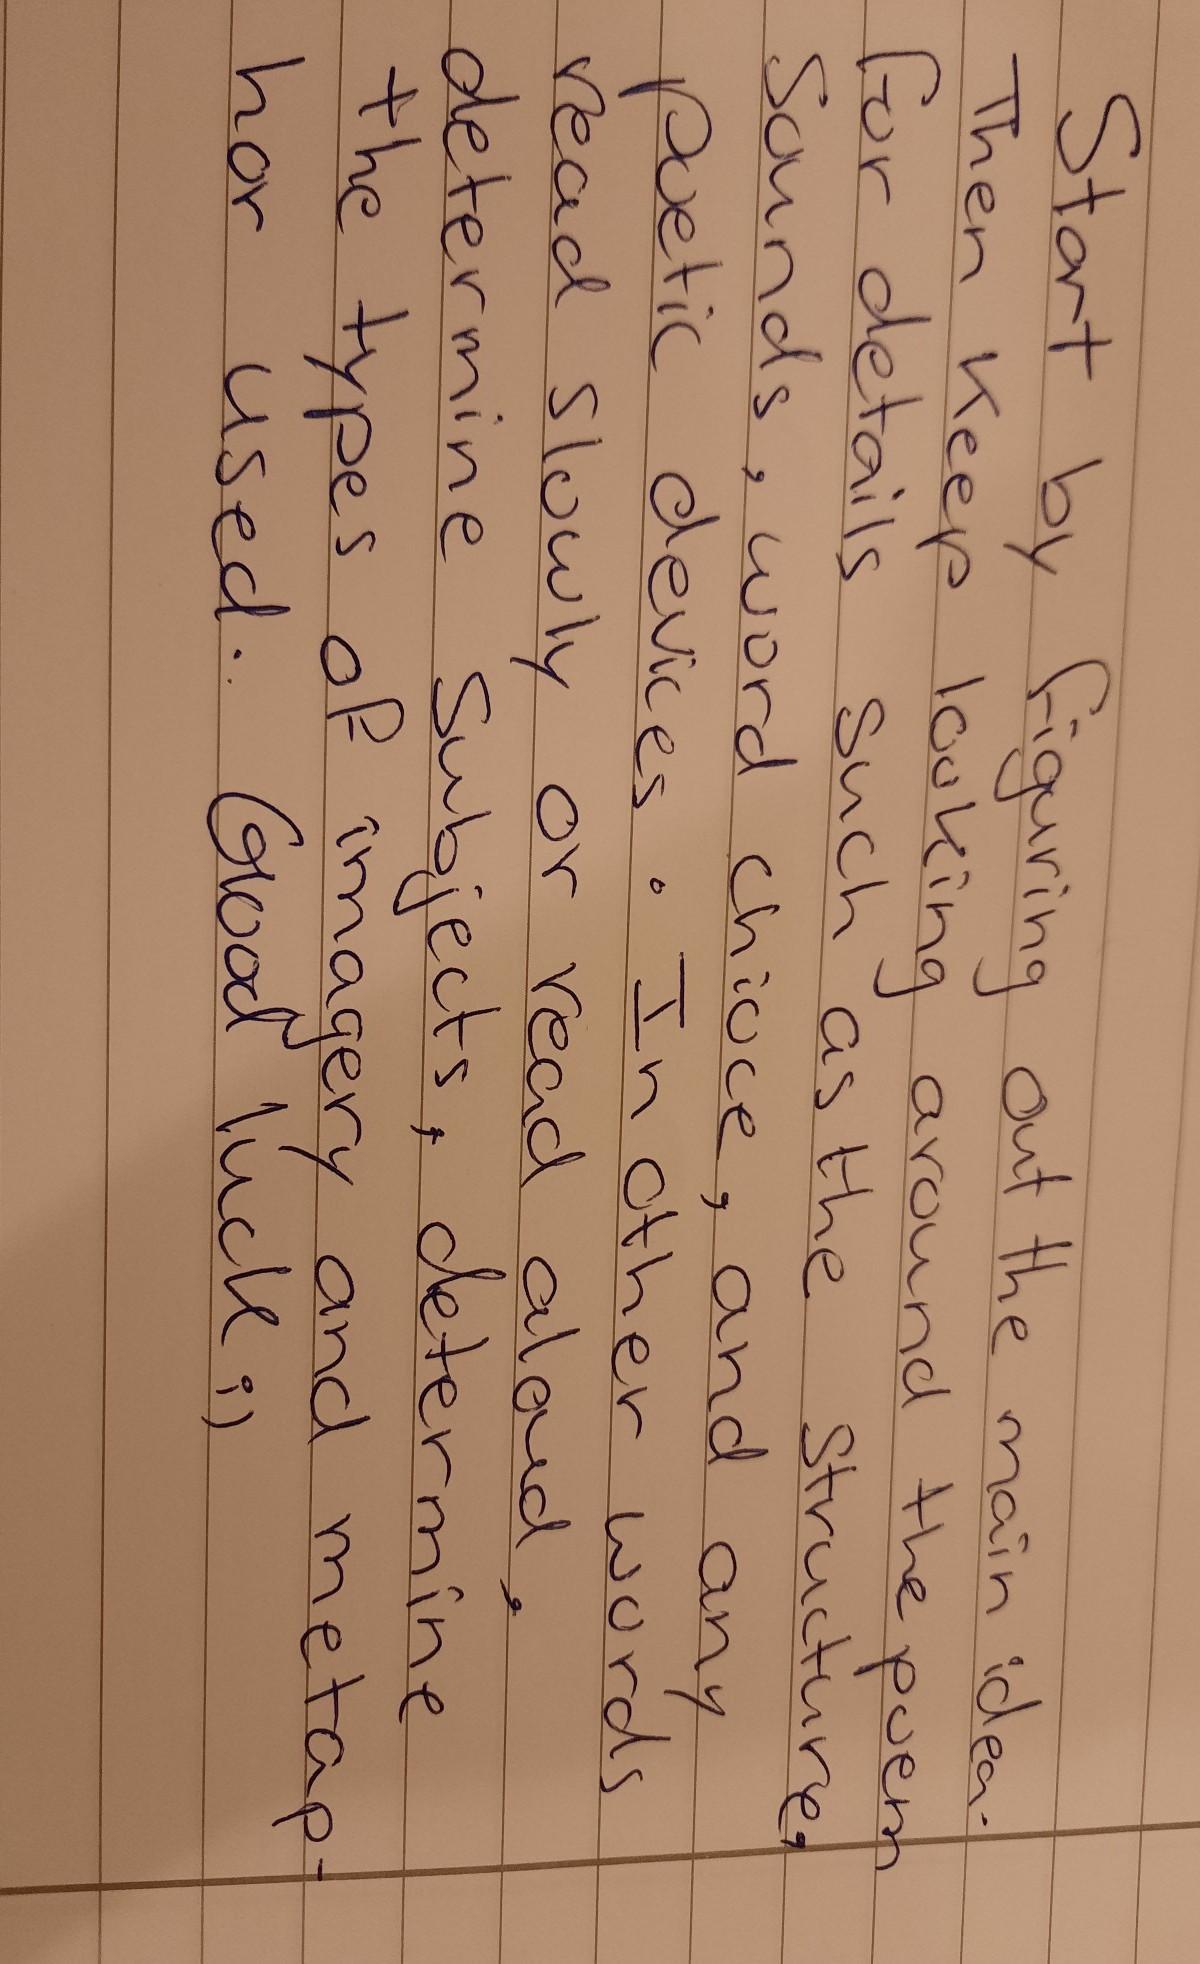 Start by figuring out the main idea.
Then keep looking around the poem
for details such as the structure,
sounds, word chioce, and any
poetic devices. In other words
read slowly or read aloud,
determine subjects, determine
the types of imagery and metap-
hor used. Good luck :)